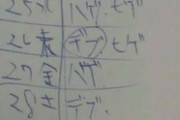 25水 ハゲ.ヒゲ
26木 デブ ヒゲ
27金 ハゲ
28土 デブ.